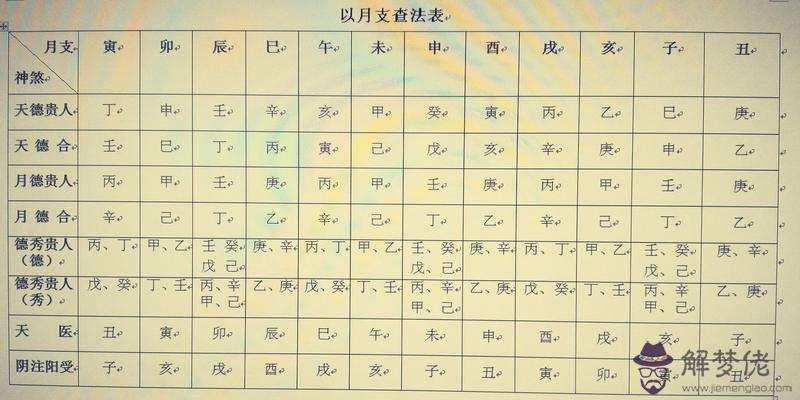 以月支查法表
月支 寅 卯 辰 巳 午 未 申 酉 戌 亥 子 丑
神煞
天德贵人 丁 申 壬 辛 亥 甲 癸 寅 丙 乙 巳 庚
天德合 壬 巳 丁 丙 寅 己 戊 亥 辛 庚 申 乙
月德贵人 丙 甲 壬 庚 丙 甲 壬 庚 丙 甲 壬 庚
月德合 辛 己 丁 乙 辛 己 丁 乙 辛 己 丁 乙
德秀贵人 丙、丁 甲、乙 壬 癸 庚、辛 丙、丁 甲、乙 壬、癸 庚、辛 丙、丁 甲、乙 壬、癸 庚、辛
(德) 戊 己 戊、己 戊、己
德秀贵人 戊、癸 丁、壬 丙、辛 乙、庚 戊、癸 丁、壬 丙、辛 乙、庚 戊、癸 丁、壬 丙、辛 乙、庚
(秀) 甲、己 甲、己 甲、己
天医 丑 寅 卯 辰 巳 午 未 申 酉 戌 亥 子
阴注阳受 子 亥 戌 酉 戌 亥 子 丑 寅 卯 寅 丑
解梦佬
www.jiemenglao.com